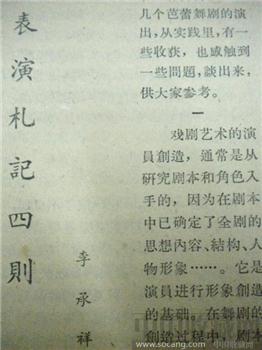 表演札記四則
李承祥
几个芭蕾舞剧的演
出,从实践里,有一
些收获,也感触到
一些問題,談出来,
供大家参考。
一
戏剧艺术的演
員創造,通常是从
研究剧本和角色入
手的,因为在剧本
中已确定了全剧的
思想内容、結构、人
物形象……。它是
演員进行形象創造
的基础。在舞剧的
創造过程中,剧本
www.socang.com